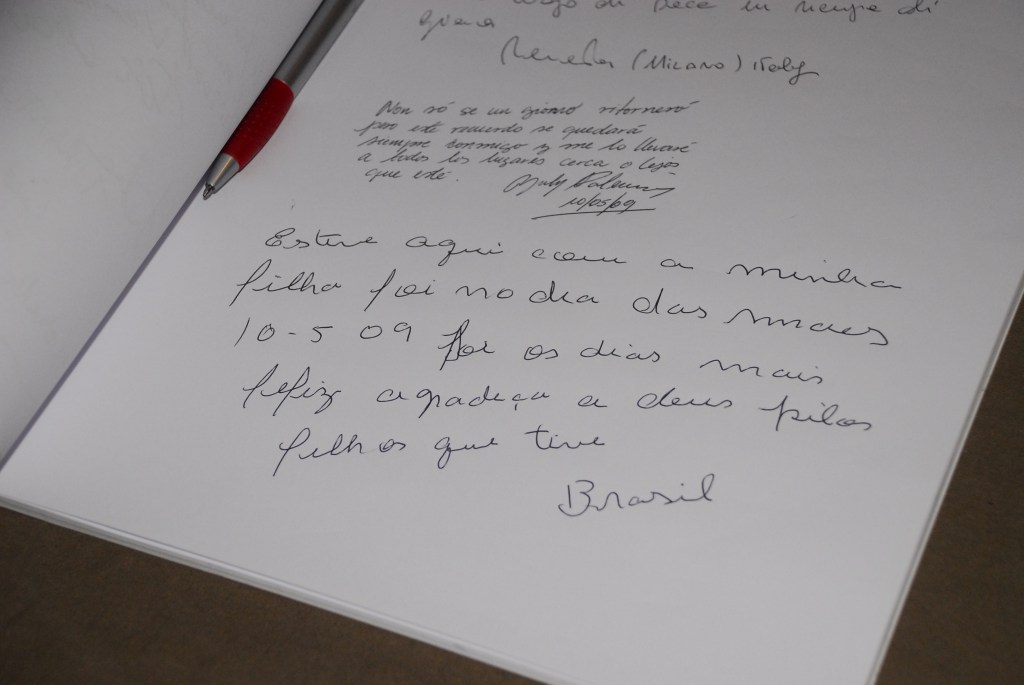 in tempo di
guerra
(Milano) Italy
Non só se un giorno ritorneró
pero este recuerdo se quedará
siempre conmigo y me lo llevaré
a todos los lugares cerca o lejos
que esté.
10/05/09
Estive aqui com a minha
filha foi no dia das maes
10-5 09 foi os dias mais
felfiz agradeça a deus pilos
filhos que tive
Brasil